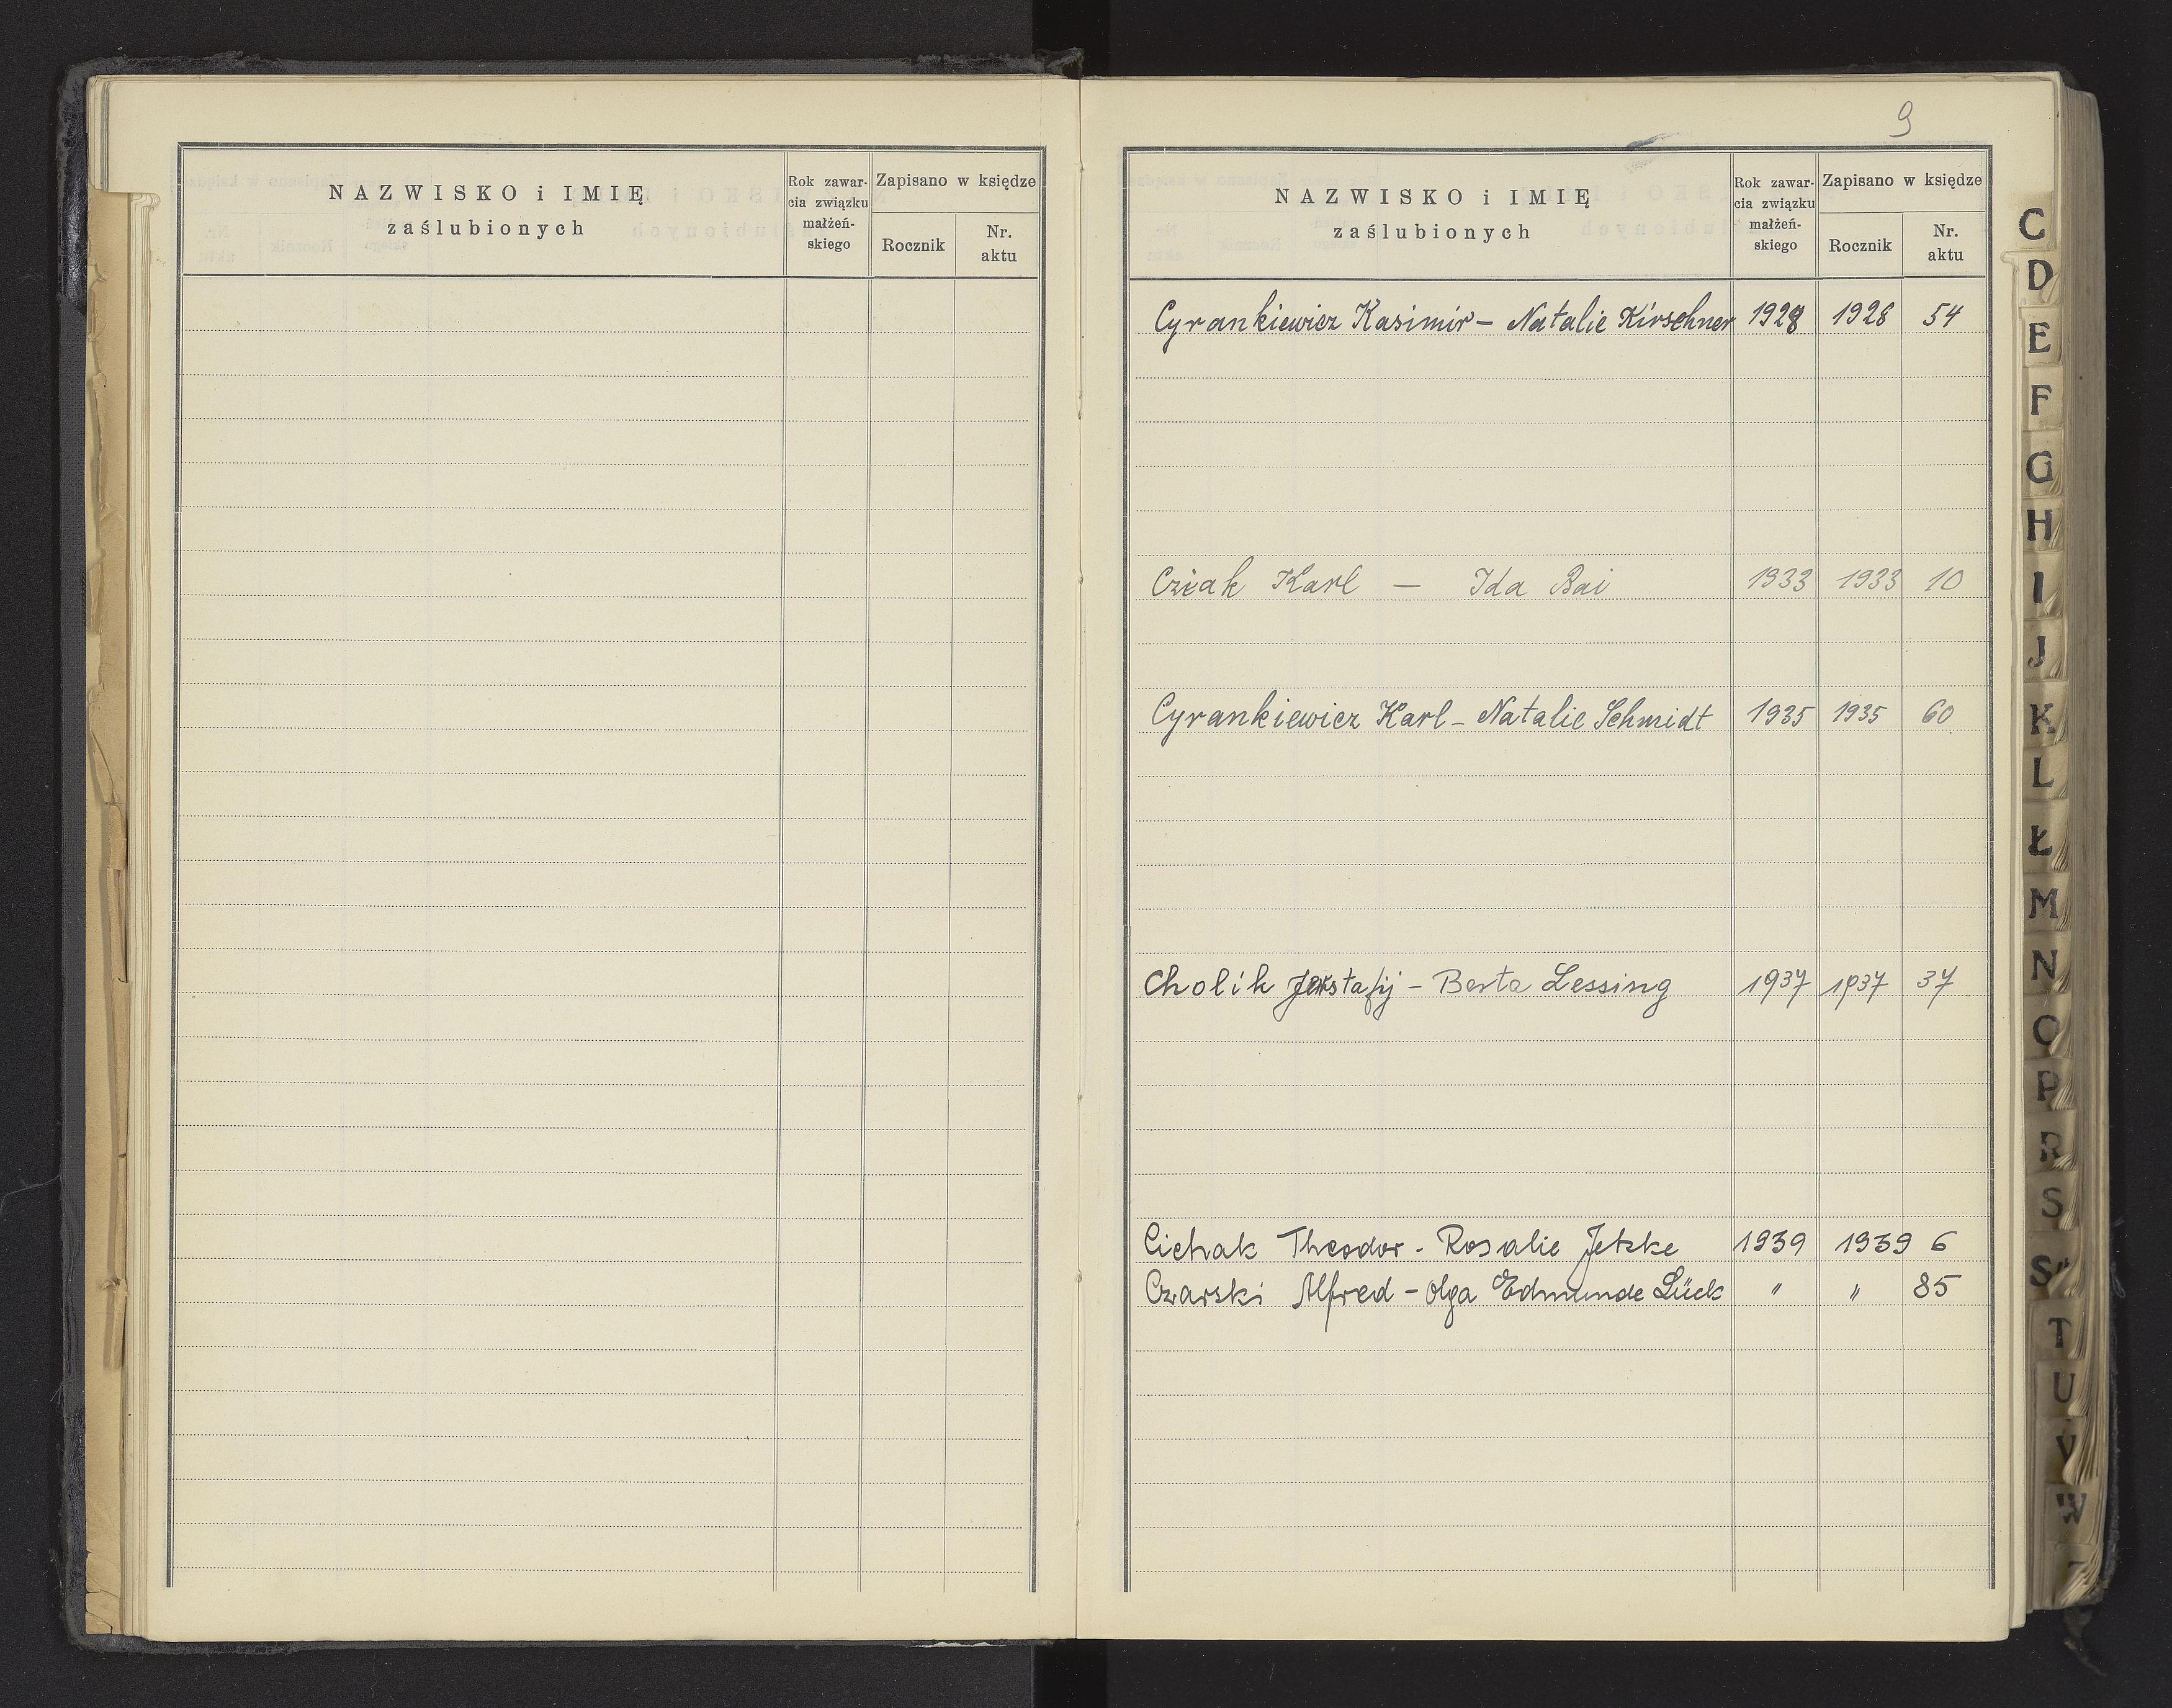 NAZWISKO i IMIĘ
zaślubionych
Rok zawar-
cia związku
małżeń-
skiego
Zapisano w księdze
Rocznik
Nr.
aktu
9
NAZWISKO i IMIĘ
zaślubionych
Rok zawar-
cia związku
małżeń-
skiego
Zapisano w księdze
Rocznik
Nr.
aktu
Cyrankiewicz Kasimir - Natalie Kirschner 1928 1928 54
Cziak Karl - Ida Bai 1933 1933 10
Cyrankiewicz Karl - Natalie Schmidt 1935 1935 60
Cholik - Berta Lessing 1937 1937 37
Cichak Theodor - Rosalie Jetzke 1939 1939 6
Czarski Alfred - Olga Edmunde Lück " " 85
C
D
E
F
G
H
I
J
K
L
Ł
M
N
O
P
R
S
Ś
T
U
V
W
Z